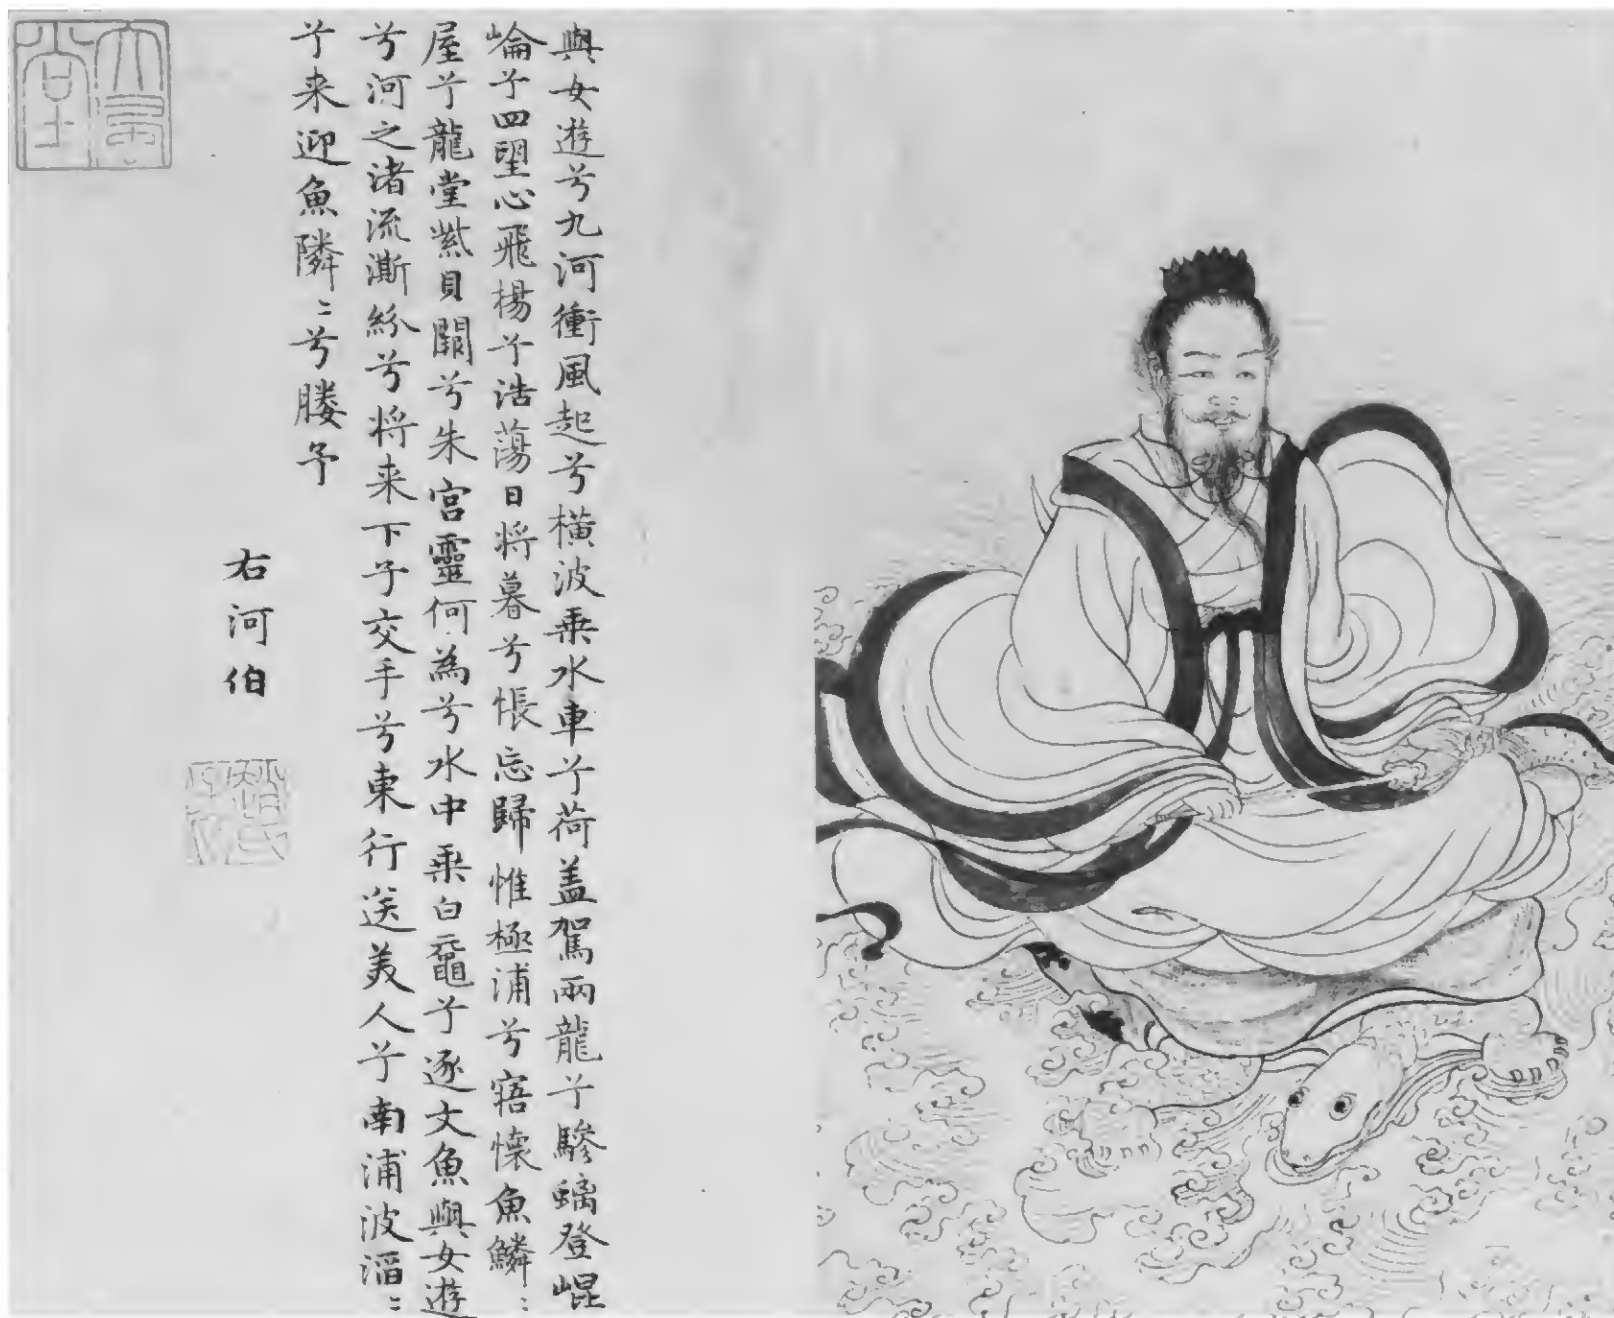 與女遊兮九河衝風起兮橫波乗水車兮荷盖駕兩龍兮驂螭登崐
崘兮四望心飛楊兮浩蕩日将暮兮悵忘歸惟極浦兮寤懐魚鱗〻
屋兮龍堂紫貝闕兮朱宫靈何為兮水中乗白黿兮逐文魚與女遊
兮河之渚流澌紛兮将来下子交手兮東行送美人兮南浦波滔〻
兮来迎魚隣〻兮媵予
右河伯
趙氏子昂